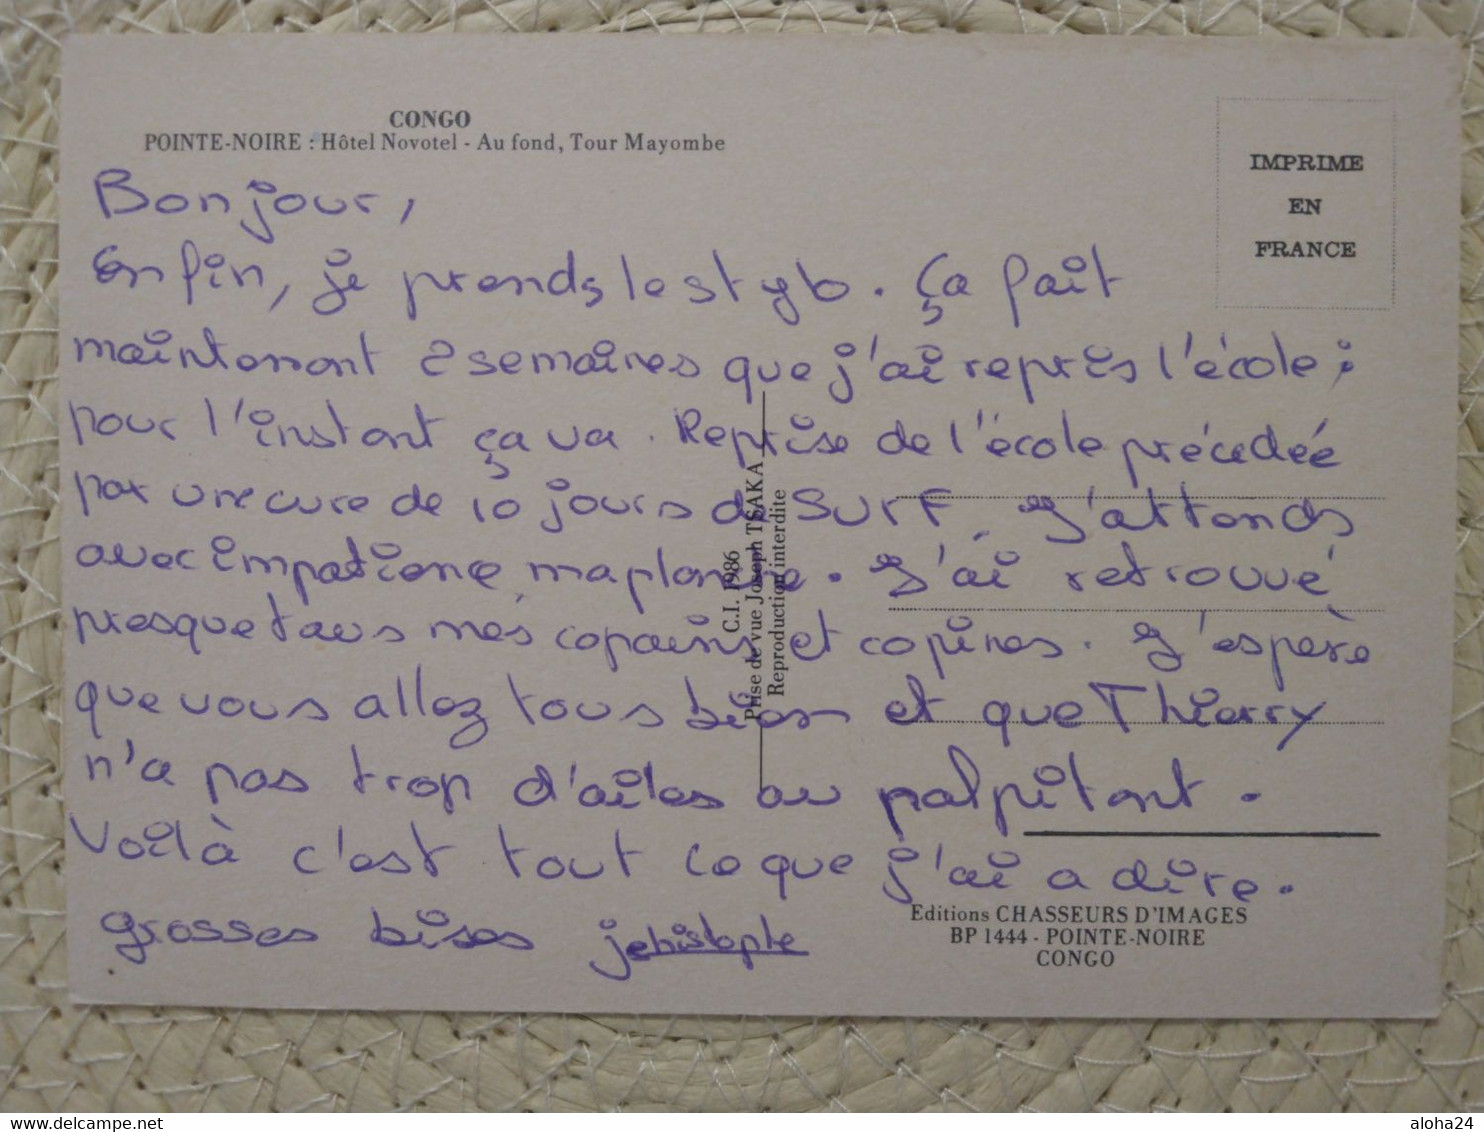 CONGO
POINTE-NOIRE : Hôtel Novotel - Au fond, Tour Mayombe
IMPRIME
EN
FRANCE
Bonjour,
Enfin, je prends le stylo. Ça fait
maintenant 2 semaines que j'ai repris l'école ;
pour l'instant ça va. Reprise de l'école précédée
par une cure de 10 jours de SURF. J'attends
avec impatience ma planche. J'ai retrouvé
presque tous mes copains et copines. J'espère
que vous allez tous bien et que Thierry
n'a pas trop d'ailes au palpitant.
Voilà c'est tout ce que j'ai a dire.
grosses bises
C.I. 1986
Prise de vue Joseph TSAKA
Reproduction interdite
Editions CHASSEURS D'IMAGES
BP 1444 - POINTE-NOIRE
CONGO
www.delcampe.net
aloha24